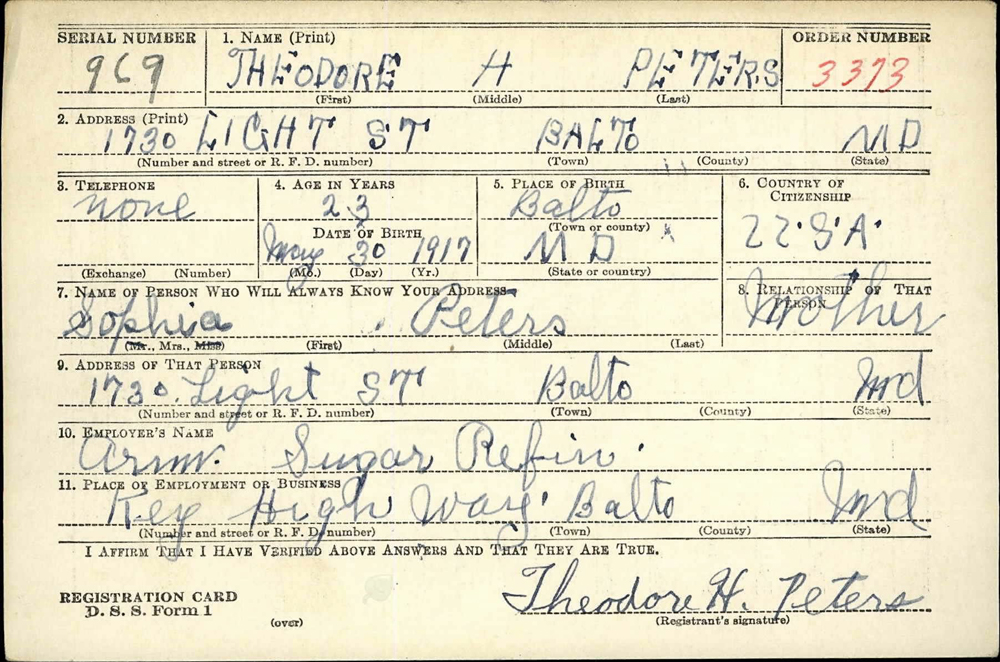 SERIAL NUMBER 1. NAME (Print) ORDER NUMBER
969 THEODORE H PETERS 3373
(First) (Middle) (Last)
2. ADDRESS (Print)
1730 LIGHT ST BALTO MD
(Number and street or R. F. D. number) (Town) (County) (State)
3. TELEPHONE 4. AGE IN YEARS 5. PLACE OF BIRTH 6. COUNTRY OF CITIZENSHIP
none 23 Balto U.S.A.
DATE OF BIRTH (Town or county)
May 30 1917 MD
(Exchange) (Number) (Mo.) (Day) (Yr.) (State or country)
7. NAME OF PERSON WHO WILL ALWAYS KNOW YOUR ADDRESS 8. RELATIONSHIP OF THAT PERSON
Sophia Peters Mother
(Mr., Mrs., Miss) (First) (Middle) (Last)
9. ADDRESS OF THAT PERSON
1730 Light ST Balto Md
(Number and street or R. F. D. number) (Town) (County) (State)
10. EMPLOYER'S NAME
Sugar Refin.
11. PLACE OF EMPLOYMENT OR BUSINESS
Key High Way Balto Md
(Number and street or R. F. D. number) (Town) (County) (State)
I AFFIRM THAT I HAVE VERIFIED ABOVE ANSWERS AND THAT THEY ARE TRUE.
Theodore H. Peters
REGISTRATION CARD
D. S. S. Form 1 (over) (Registrant's signature)